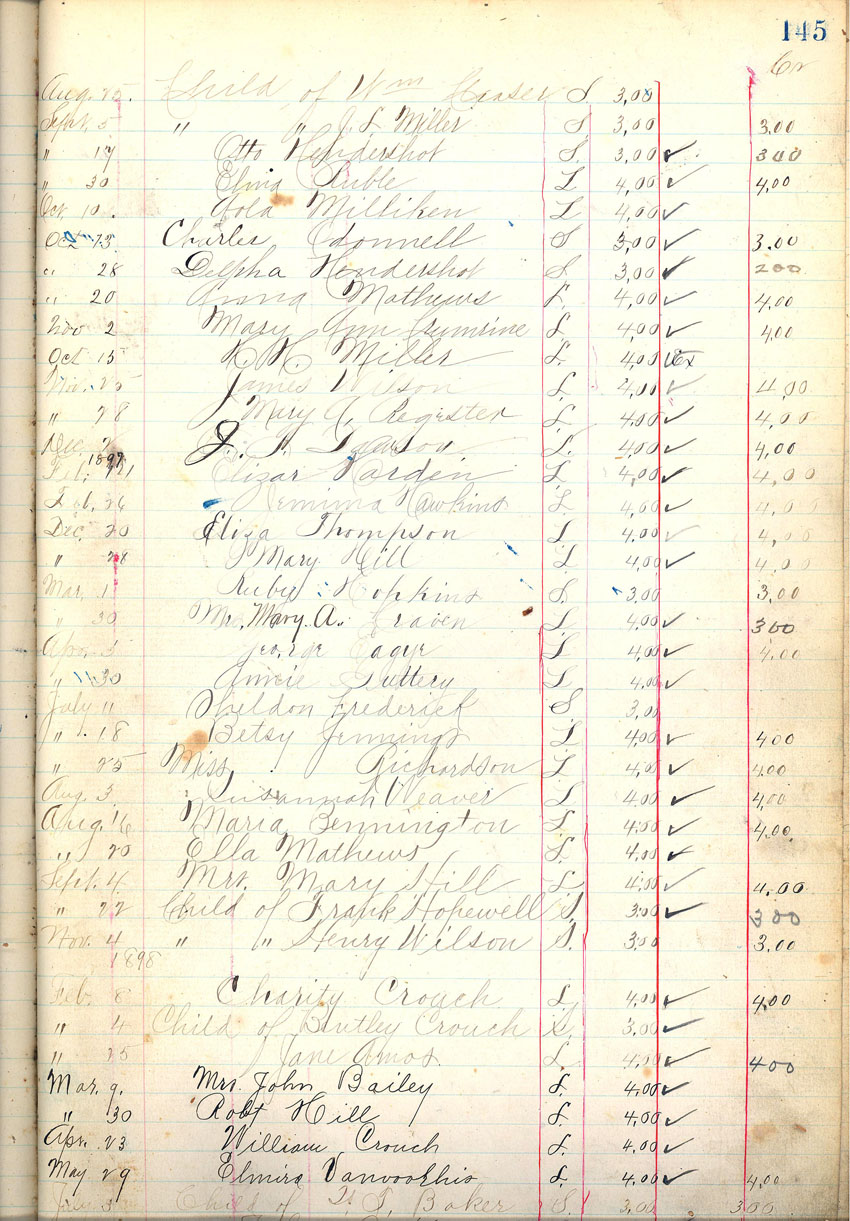 145
Cr
Aug. 25. Child of Wm S. 3,00
Sept. 5 " " J. L. Miller S 3,00 3.00
" 19 Otto Hendershot S. 3,00 ✓ 300
" 30 Ruble L 4,00 ✓ 4,00
Oct 10. Milliken L 4,00 ✓
Oct 13 Charles Odonnell S 3,00 ✓ 3.00
" 28 Delpha Hendershot S. 3,00 ✓ 200
" 20 Anna Mathews L. 4,00 ✓ 4,00
Nov 2 Mary Ann Crumrine L. 4,00 ✓ 4,00
Oct 15 Miller L. 4,00
Nov. 25 James Wilson L. 4,00 ✓ 4,00
" 28 Mary A. Register L. 4,00 ✓ 4,00
Dec. 2 J. L. 4,00 ✓ 4,00
1897
Feb. Elizar Harden L 4,00 ✓ 4,00
Feb. 26 Jemima Hawkins L. 4,00 ✓ 4,00
Dec. 20 Eliza Thompson L 4,00 ✓ 4,00
" 28 Mary Hill L 4,00 ✓ 4,00
Mar. 1 Ruby Hopkins S. 3,00 3,00
" 30 Mrs. Mary. A. Craven L 4,00 ✓ 300
Apr. 3 George L 4,00 ✓ 4,00
" 30 Annie Luttery L 4,00 ✓
July 11 Sheldon Frederick S 3,00
" 18 Betsy Jennings L 4,00 ✓ 400
" 25 Miss Richardson L 4,00 ✓ 4,00
Aug. 3. Susannah Weaver L 4,00 ✓ 4,00
Aug. 16 Maria Bennington L. 4,00 ✓ 4,00
" 20 Ella Mathews L. 4,00 ✓
Sept. 4 Mrs. Mary Hill L 4,00 ✓ 4,00
" 22 Child of Frank Hopewell S. 3,00 ✓ 300
Nov. 4 " " Henry Wilson S. 3,00 3,00
1898
Feb. 8 Charity Crouch L. 4,00 ✓ 4,00
" 4 Child of Crouch S. 3,00 ✓
" 25 Jane Amos L. 4,00 ✓ 400
Mar. 9. Mrs. John Bailey L. 4,00 ✓
" 30 Robt Hill L. 4,00 ✓
Apr. 23 William Crouch L. 4,00 ✓
May 29 Elmira Vanvoorhis L. 4,00 ✓ 4,00
3 Child of Baker S. 3,00 300